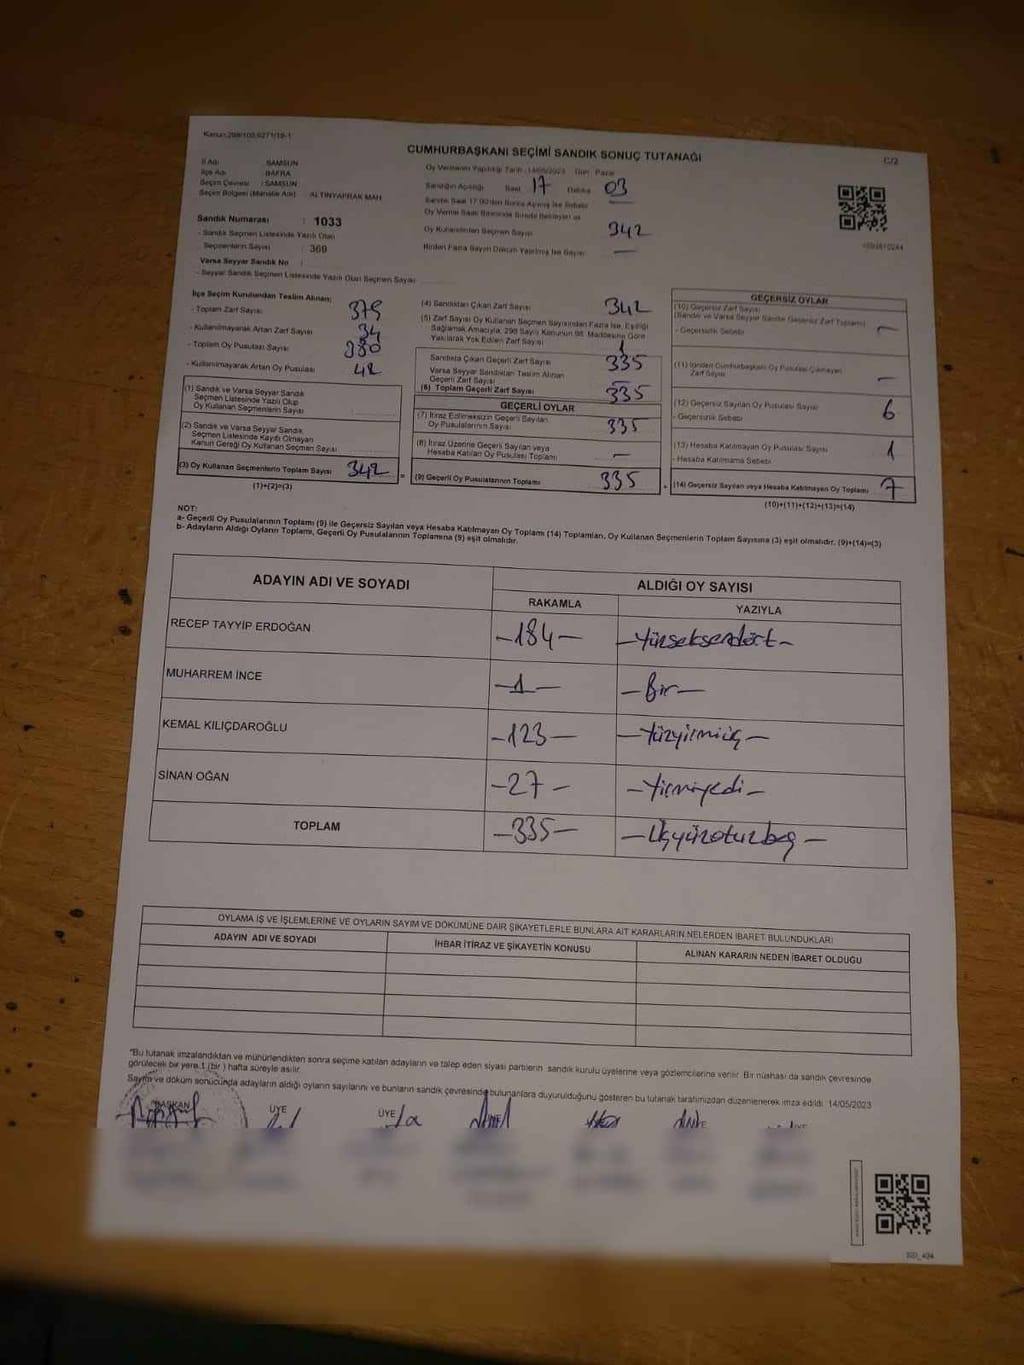 Kanun:298/105,6271/19-1
CUMHURBAŞKANI SEÇİMİ SANDIK SONUÇ TUTANAĞI
C/2
İl Adı : SAMSUN
İlçe Adı : BAFRA
Seçim Çevresi : SAMSUN
Seçim Bölgesi (Mahalle Adı) : ALTINYAPRAK MAH
Sandık Numarası : 1033
- Sandık Seçmen Listesinde Yazılı Olan
Seçmenlerin Sayısı : 369
Varsa Seyyar Sandık No :
- Seyyar Sandık Seçmen Listesinde Yazılı Olan Seçmen Sayısı
Oy Vermenin Yapıldığı Tarih : 14/05/2023 Gün : Pazar
Sandığın Açıldığı Saat 17 Dakika 03
Sandık Saat 17.00'den Sonra Açılmış İse Sebebi —
Oy Kullandırılan Seçmen Sayısı 342
Birden Fazla Sayım Döküm Yapılmış İse Sayısı —
İlçe Seçim Kurulundan Teslim Alınan;
- Toplam Zarf Sayısı 379
- Kullanılmayarak Artan Zarf Sayısı 34
- Toplam Oy Pusulası Sayısı 380
- Kullanılmayarak Artan Oy Pusulası 42
(1) Sandık ve Varsa Seyyar Sandık
Seçmen Listesinde Yazılı Olup
Oy Kullanan Seçmenlerin Sayısı
(2) Sandık ve Varsa Seyyar Sandık
Seçmen Listesinde Kayıtlı Olmayan
Kanun Gereği Oy Kullanan Seçmen Sayısı
(3) Oy Kullanan Seçmenlerin Toplam Sayısı 342
(1)+(2)=(3)
(4) Sandıktan Çıkan Zarf Sayısı 342
(5) Zarf Sayısı Oy Kullanan Seçmen Sayısından Fazla İse, Eşitliği
Sağlamak Amacıyla, 298 Sayılı Kanunun 98. Maddesine Göre
Yakılarak Yok Edilen Zarf Sayısı
Sandıkta Çıkan Geçerli Zarf Sayısı 335
Varsa Seyyar Sandıktan Teslim Alınan
Geçerli Zarf Sayısı —
(6) Toplam Geçerli Zarf Sayısı 335
GEÇERLİ OYLAR
(7) İtiraz Edilmeksizin Geçerli Sayılan
Oy Pusulalarının Sayısı 335
(8) İtiraz Üzerine Geçerli Sayılan veya
Hesaba Katılan Oy Pusulası Toplamı —
(9) Geçerli Oy Pusulalarının Toplamı 335
GEÇERSİZ OYLAR
(10) Geçersiz Zarf Sayısı
(Sandık ve Varsa Seyyar Sandık Geçersiz Zarf Toplamı) —
- Geçersizlik Sebebi
(11) İçinden Cumhurbaşkanı Oy Pusulası Çıkmayan
Zarf Sayısı —
(12) Geçersiz Sayılan Oy Pusulası Sayısı 6
- Geçersizlik Sebebi
(13) Hesaba Katılmayan Oy Pusulası Sayısı 1
- Hesaba Katılmama Sebebi
(14) Geçersiz Sayılan veya Hesaba Katılmayan Oy Toplamı 7
(10)+(11)+(12)+(13)=(14)
NOT:
a- Geçerli Oy Pusulalarının Toplamı (9) ile Geçersiz Sayılan veya Hesaba Katılmayan Oy Toplamı (14) Toplamları, Oy Kullanan Seçmenlerin Toplam Sayısına (3) eşit olmalıdır. (9)+(14)=(3)
b- Adayların Aldığı Oyların Toplamı, Geçerli Oy Pusulalarının Toplamına (9) eşit olmalıdır.
ADAYIN ADI VE SOYADI ALDIĞI OY SAYISI
RAKAMLA YAZIYLA
RECEP TAYYİP ERDOĞAN -184- -Yüzseksendört-
MUHARREM İNCE -1- -Bir-
KEMAL KILIÇDAROĞLU -123- -Yüzyirmiüç-
SİNAN OĞAN -27- -Yirmiyedi-
TOPLAM -335- -Üçyüzotuzbeş-
OYLAMA İŞ VE İŞLEMLERİNE VE OYLARIN SAYIM VE DÖKÜMÜNE DAİR ŞİKAYETLERLE BUNLARA AİT KARARLARIN NELERDEN İBARET BULUNDUKLARI
ADAYIN ADI VE SOYADI İHBAR İTİRAZ VE ŞİKAYETİN KONUSU ALINAN KARARIN NEDEN İBARET OLDUĞU
*Bu tutanak imzalandıktan ve mühürlendikten sonra seçime katılan adayların ve talep eden siyasi partilerin sandık kurulu üyelerine veya gözlemcilerine verilir. Bir nüshası da sandık çevresinde
görülecek bir yere 1 (bir ) hafta süreyle asılır.
Sayım ve döküm sonucunda adayların aldığı oyların sayılarını ve bunların sandık çevresinde bulunanlara duyurulduğunu gösteren bu tutanak tarafımızdan düzenlenerek imza edildi. 14/05/2023
BAŞKAN ÜYE ÜYE